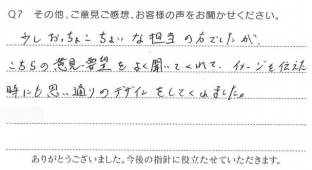 Q7 その他、ご意見ご感想、お客様の声をお聞かせください。
少しおっちょこちょいな担当の方でしたが、
こちらの意見・要望をよく聞いてくれて、イメージを伝えた
時にも思い通りのデザインをしてくれました。
ありがとうございました。今後の指針に役立たせていただきます。